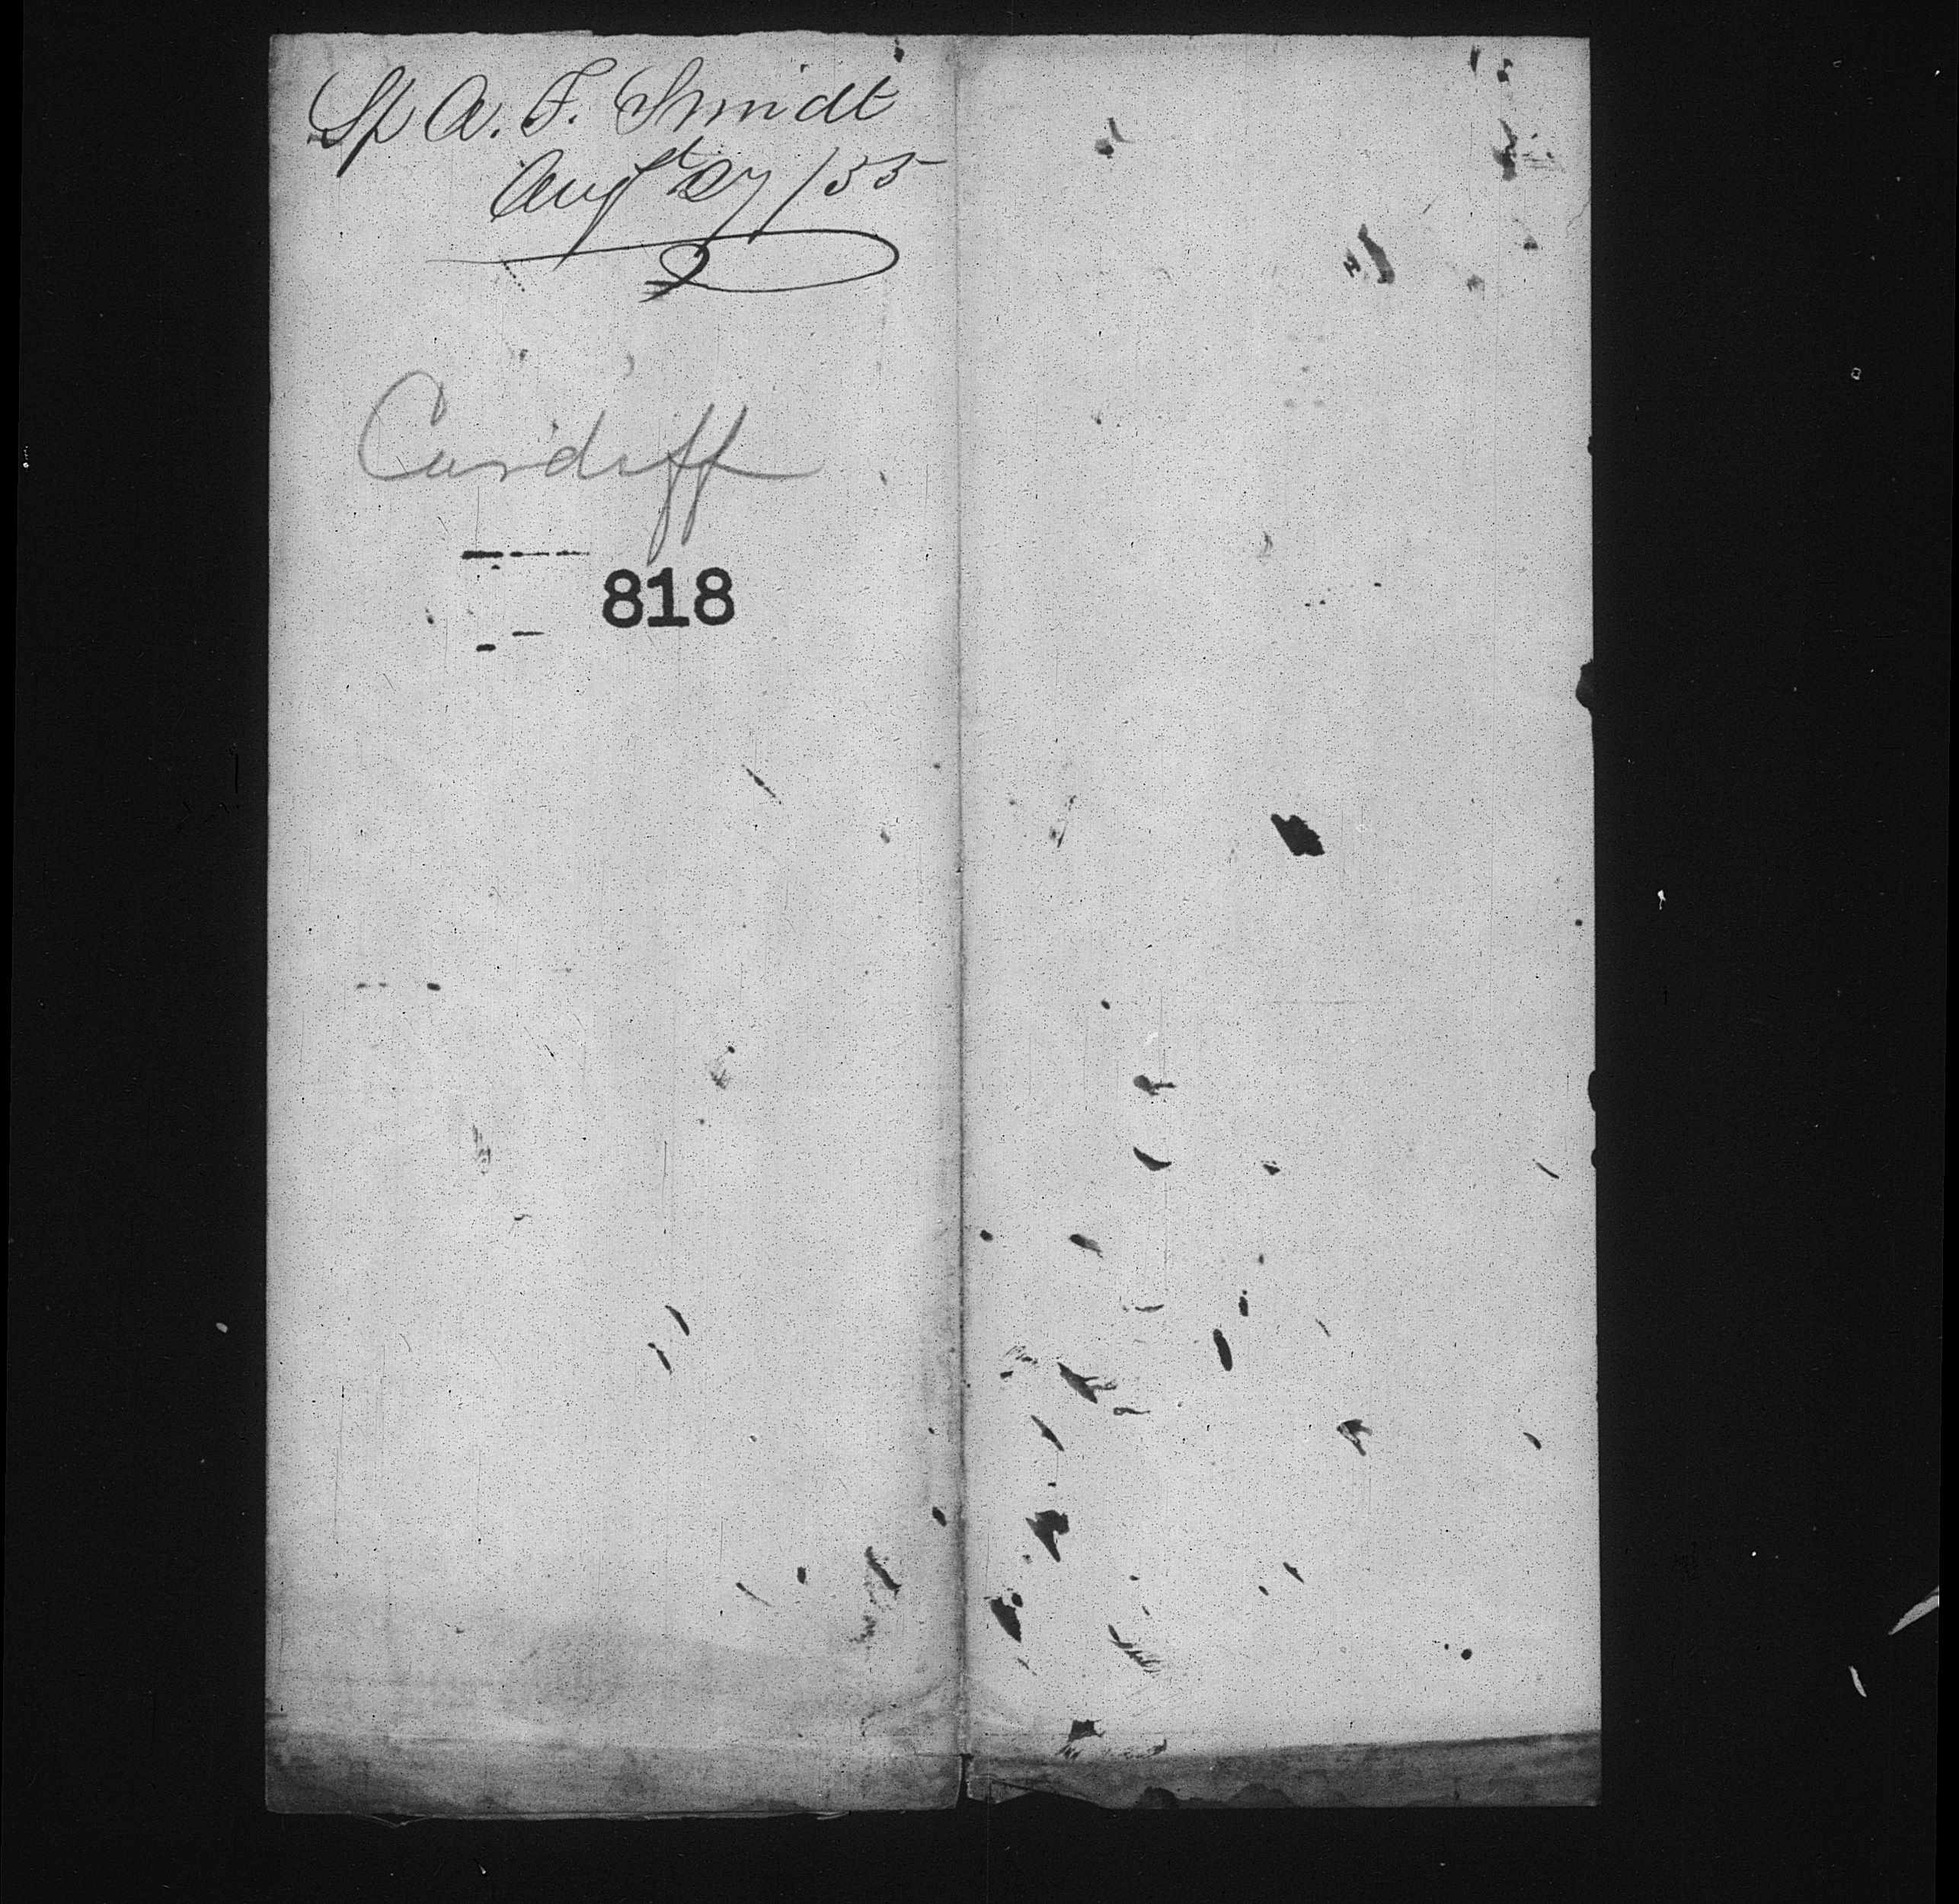 Sp A. F. Shmidt
Augt 27/55
Cardiff
818